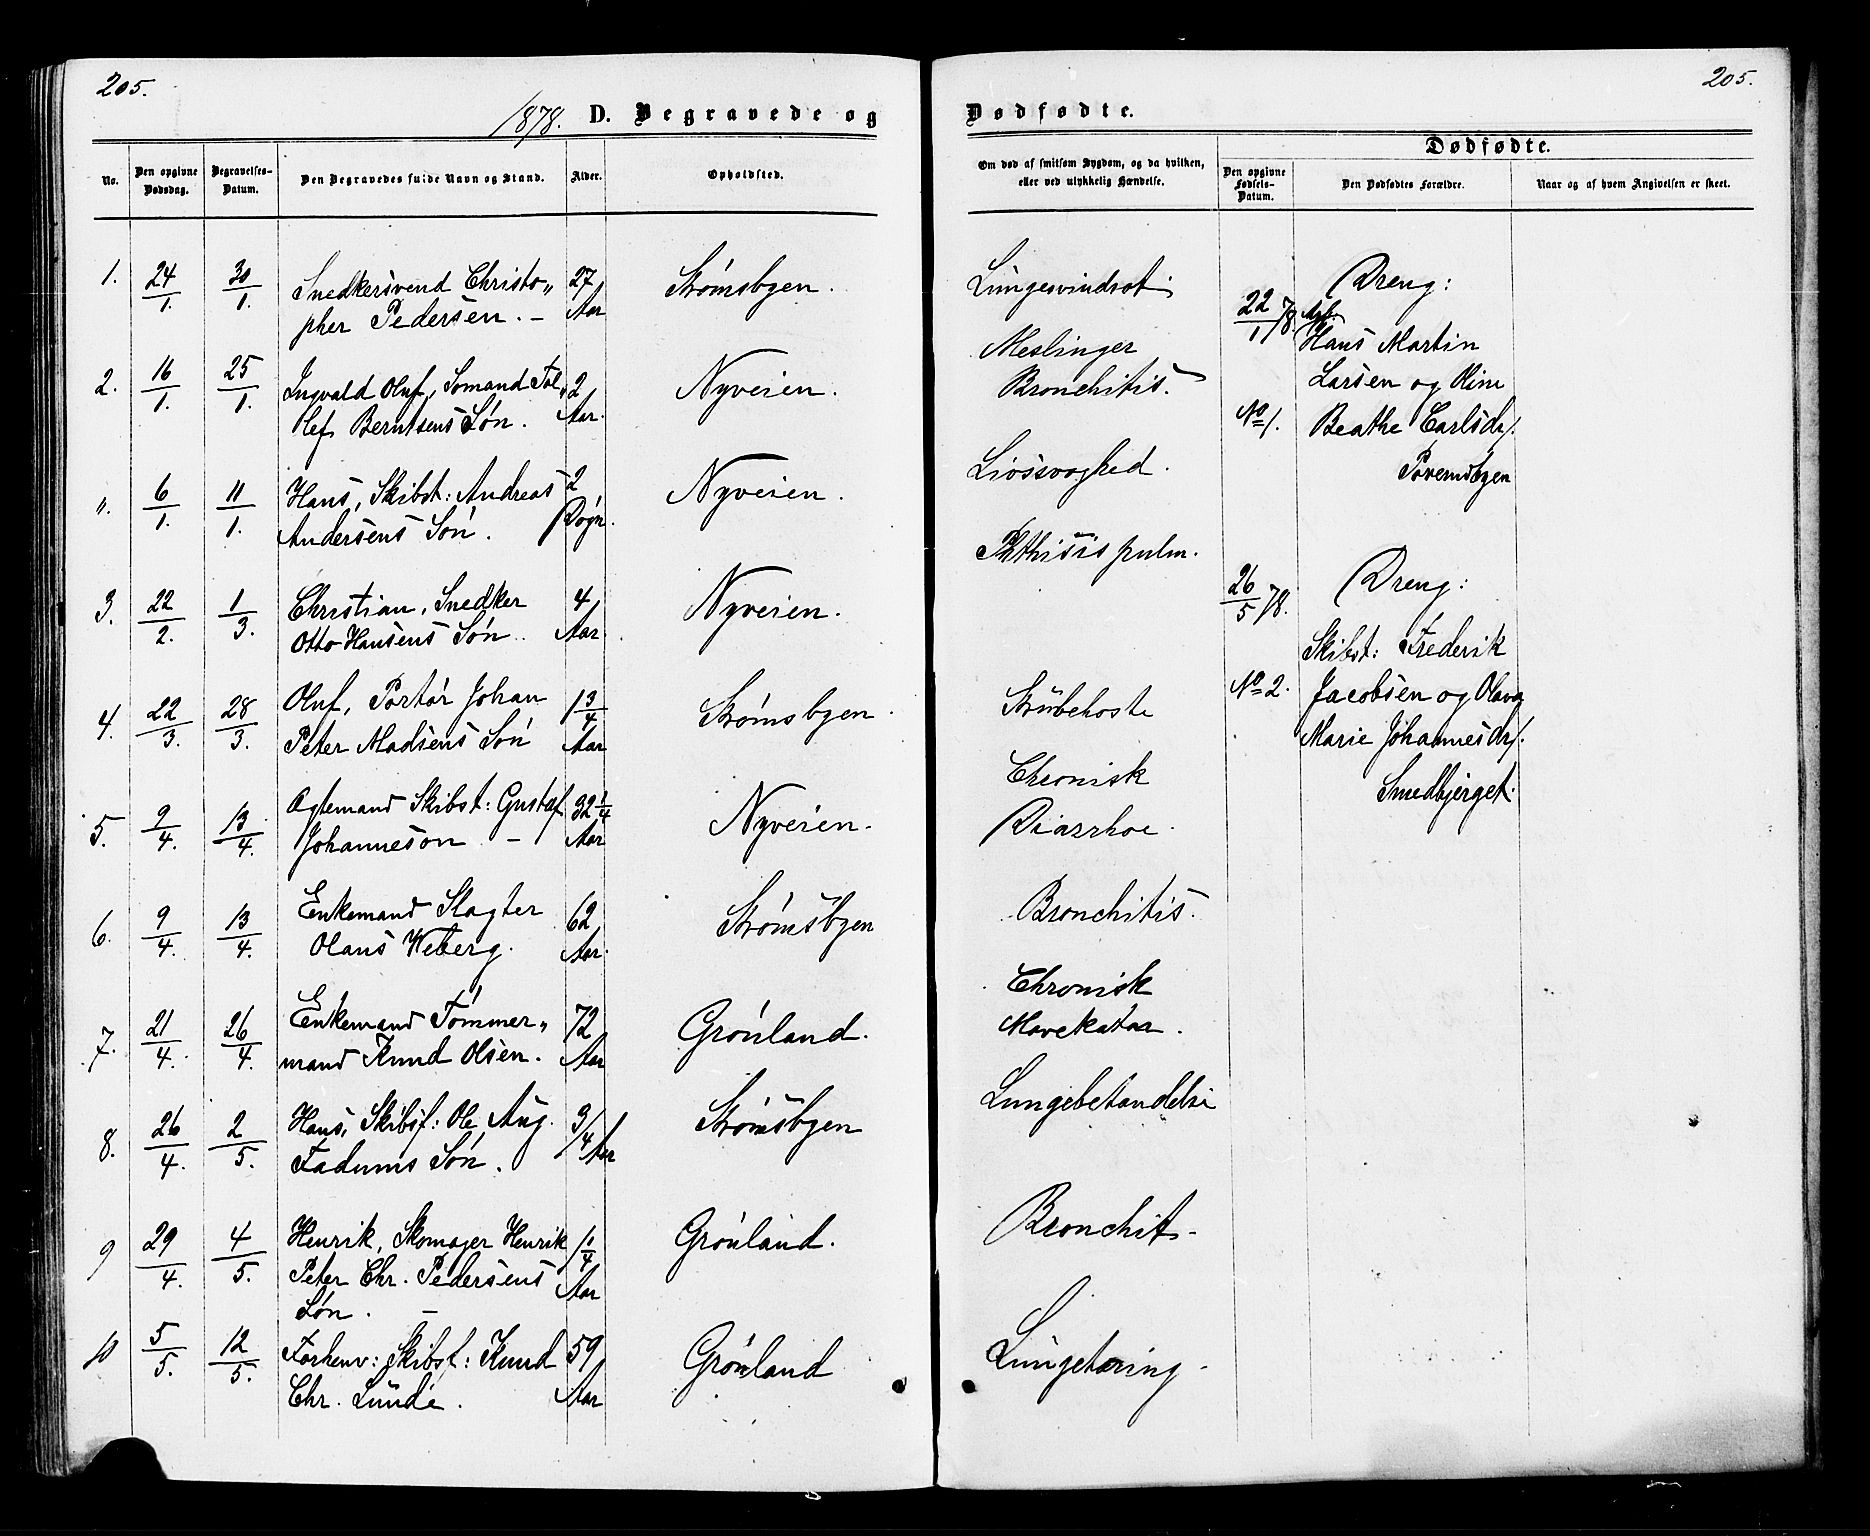 205.
1878. D. Begravede og
No.
Den opgivne Dødsdag.
Begravelses-Datum.
Den Begravedes fulde Navn og Stand.
Alder.
Opholdsted.
1. 24/1. 30/1. Snedkersvend Christo„ 27 Strømsbyen.
pher Pedersen. – Aar
2. 16/1. 25/1. Ingvald Oluf, Sømand Tol„ 2 Nyveien.
lef Berntsens Søn. Aar.
„. 6/1. 11/1. Hans, Skibst: Andreas 2 Nyveien.
Andersens Søn. Døgn.
3. 22/2. 1/3. Christian, Snedker 4 Nyveien.
Otto Hansens Søn. Aar.
4. 22/3. 28/3. Oluf, Portør Johan 1 3/4 Strømsbyen.
Peter Madsens Søn Aar
5. 9/4. 13/4. Ægtemand Skibst: Gustaf 32 1/4 Nyveien.
Johanneson – Aar
6. 9/4. 13/4. Enkemand Slagter 62 Strømsbyen
Olaus Weberg. Aar.
7. 21/4. 26/4. Enkemand Tømmer„ 72 Grønland.
mand Knud Olsen. Aar
8. 26/4. 2/5. Hans, Skibsf: Ole Aug. 3/4 Strømsbyen
Fadums Søn. Aar
9 29/4. 4/5. Henrik, Skomager Henrik 1/4 Grønland.
Peter Chr. Pedersens Aar
Søn.
10 5/5. 12/5. Forhenv: Skibsf: Knud 59 Grønland
Chr. Lunde. Aar
205.
Dødfødte.
Om død af smitsom Sygdom, og da hvilken,
eller ved ulykkelig Hændelse.
Dødfødte.
Den opgivne Fødsels-Datum.
Den Dødfødtes Forældre.
Naar og af hvem Angivelsen er skeet.
Lungesvindsot
Meslinger
Bronchitis.
Livssvaghed.
Phthisis pulm.
Strubehoste
Chronisk
Diarrhoe.
Bronchitis.
Chronisk
Mavekatar.
Lungebetændelse
Bronchit-
Lungetæring
22/1 78. Dreng:
Hans Martin
Larsen og Oline
No 1. Beathe Carlsdr.
26/5 78. Dreng:
Skibst: Frederik
No 2. Jacobsen og Olava
Marie Johannesdr.
Smedbjerget.